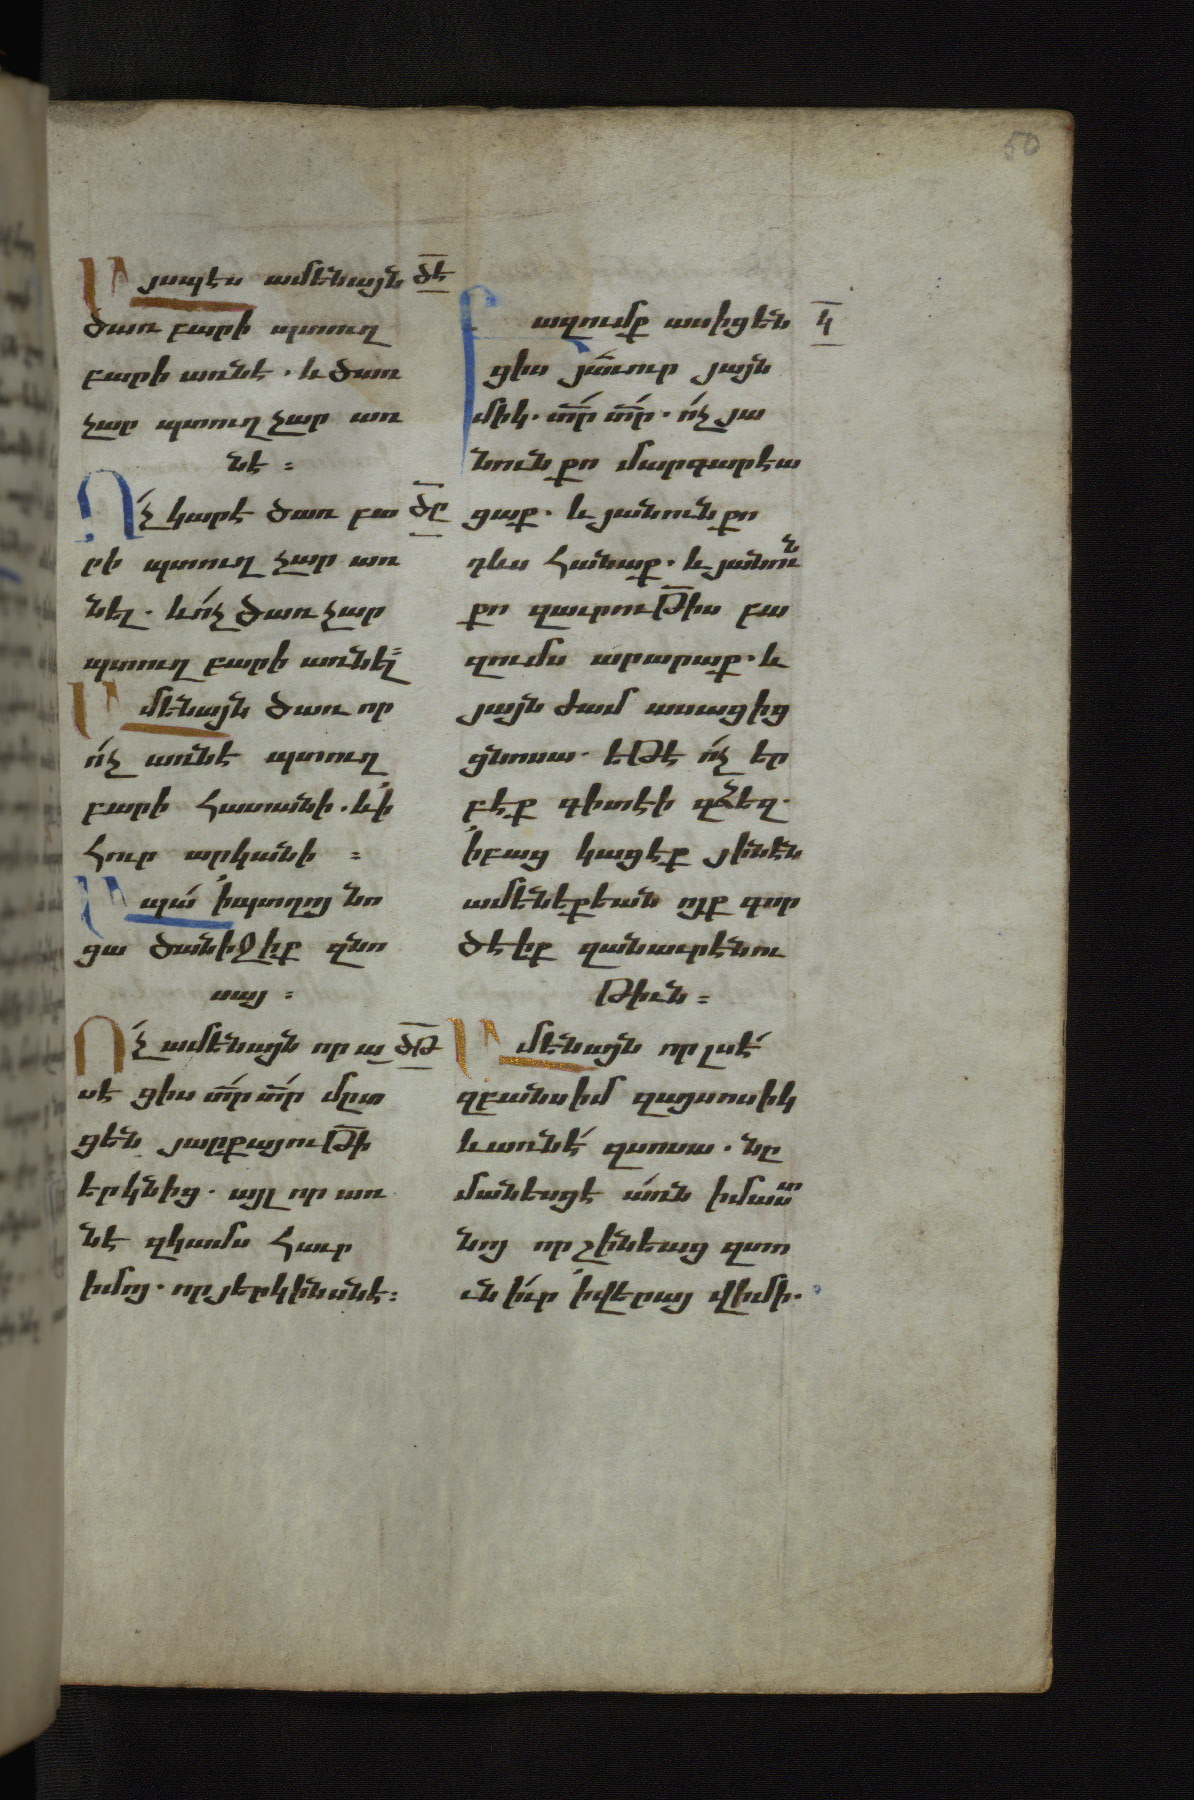 50
Այսպէս ամենայն ծէ
ծառ բարի պտուղ
բարի առնէ. և ծառ
չար պտուղ չար առ
նէ ։
Ո՛չ կարէ ծառ բա ծը
րի պտուղ չար առ
նել. և ո՛չ ծառ չար
պտուղ բարի առնել։
Ամենայն ծառ որ
ո՛չ առնէ պտուղ
բարի հատանի. և ՛ի
հուր արկանի ։
Ապա՛ ՛իպտղոյ նո
ցա ծանիջիք զնո
սայ ։
Ո՛չ ամենայն որ ա ծթ
սէ ցիս տ՛ր տ՛ր մըտ
ցեն յարքայութի
երկնից. այլ որ առ
նէ զկամս հաւր
իմոյ. որ յերկինսնէ։
Բազումք ասիցեն կ
ցիս յաւուր յայն
միկ. տ՛ր տ՛ր. ո՛չ յա
նուն քո մարգարէա
ցաք. և յանուն քո
դևս հանաք. և յանուն
քո զաւրութիս բա
զումս արարաք. և
յայն ժամ ասացից
ցնոսա. եթէ ո՛չ եր
բէք գիտէի զձեզ.
՛ի բաց կացէք յինէն
ամենեքեան ոյք գոր
ծէիք զանաւրէնու
թիւն ։
Ամենայն որ լսէ՛
զբանս իմ զայսոսիկ
և առնէ՛ զսոսա. նը
մանեսցէ առն իմաստ
նոյ որ շինեաց զտո
ւն իւր ՛ի վերայ վիմի.